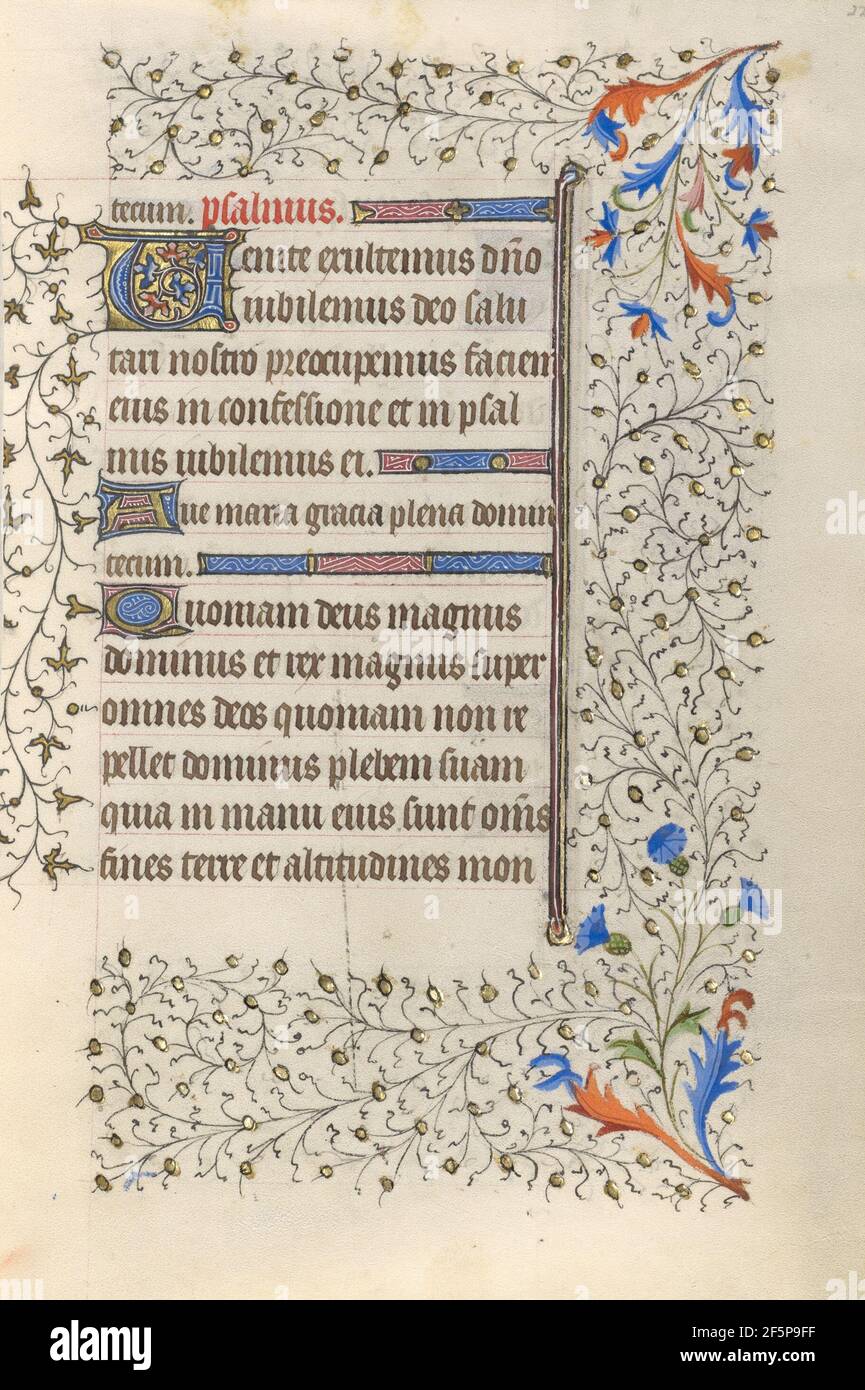 22
tecum. psalmus.
Venite exultemus dño
iubilemus deo salu
tari nostro preocupemus faciem
eius in confessione et in psal
mis iubilemus ei.
Aue maria gracia plena domin
tecum.
Quoniam deus magnus
dominus et rex magnus super
omnes deos quoniam non re
pellet dominus plebem suam
quia in manu eius sunt om̃s
fines terre et altitudines mon
alamy
Image ID: 2F5P9FF
www.alamy.com